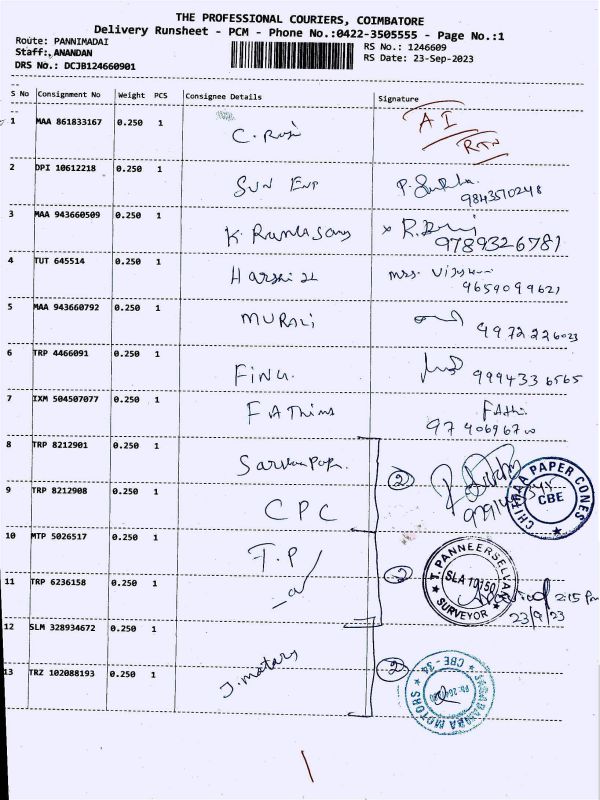 THE PROFESSIONAL COURIERS, COIMBATORE
Delivery Runsheet - PCM - Phone No.:0422-3505555 - Page No.:1
Route: PANNIMADAI
RS No.: 1246609
Staff:, ANANDAN
RS Date: 23-Sep-2023
DRS No.: DCJB124660901
S No Consignment No Weight PCS Consignee Details Signature
1 MAA 861833167 0.250 1 AI
RTN
2 DPI 10612218 0.250 1 SUN ENT
9843570248
3 MAA 943660509 0.250 1
9789326781
4 TUT 645514 0.250 1
9659099621
5 MAA 943660792 0.250 1 MURALI
9972226023
6 TRP 4466091 0.250 1
9994336565
7 IXM 504507077 0.250 1 FAThima FAthi
9740696700
8 TRP 8212901 0.250 1 2
9 TRP 8212908 0.250 1 CPC
CHEMAA PAPER CONES
CBE
10 MTP 5026517 0.250 1 T.P
11 TRP 6236158 0.250 1 2
T. PANNEERSELVAM
SLA 10150
SURVEYOR
2:15 Pm
23/9/23
12 SLM 328934672 0.250 1
13 TRZ 102088193 0.250 1 2
CBE - 34
MOTORS